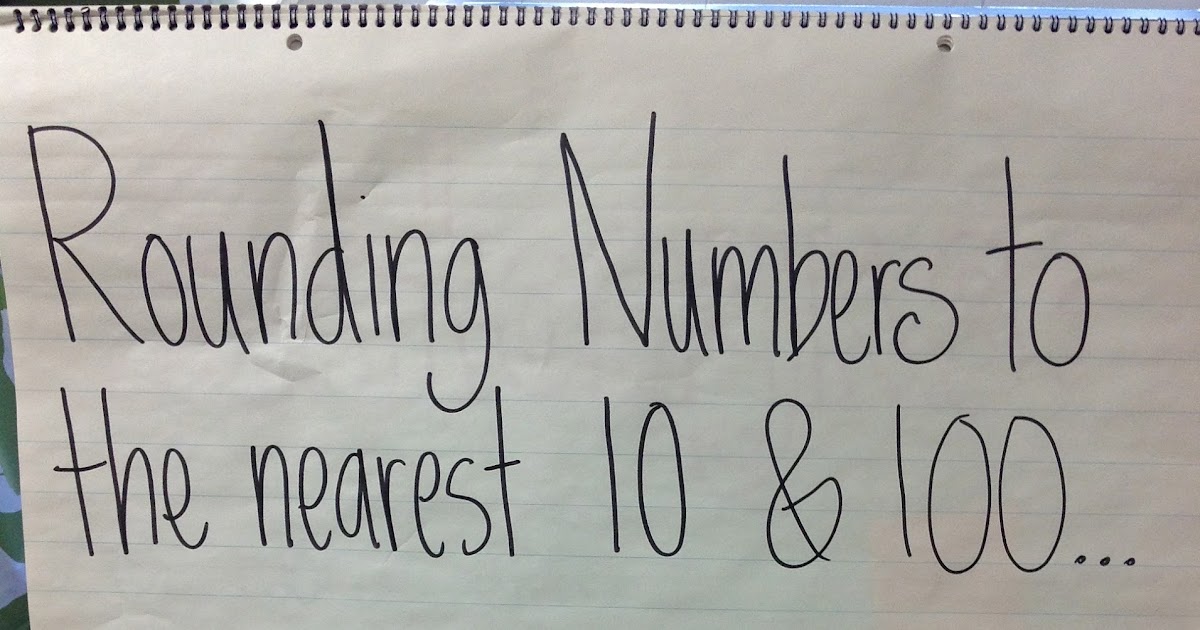 Rounding Numbers to
the nearest 10 & 100...